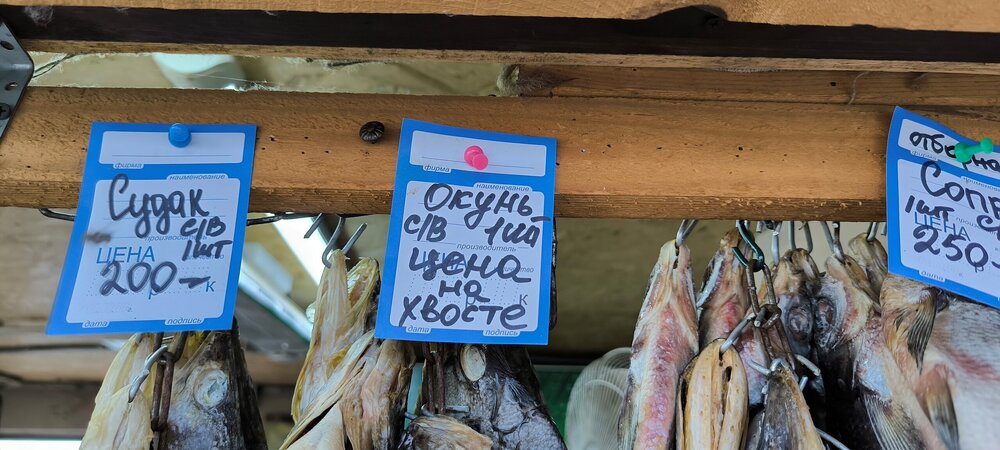 фирма
Судак
с/в
производитель
1шт
ЦЕНА
200—
р к
дата подпись
фирма
наименование
Окунь
с/в 1шт
производитель
цена
на
р к
хвосте
дата подпись
фирма
наименование
1шт с/в
ЦЕНА
250—
дата подпись